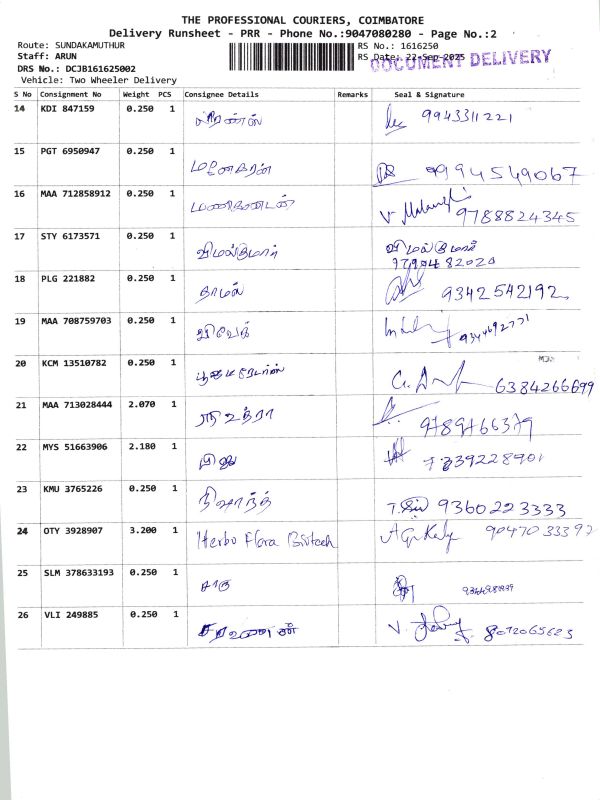 THE PROFESSIONAL COURIERS, COIMBATORE
Delivery Runsheet - PRR - Phone No.:9047080280 - Page No.:2
Route: SUNDAKAMUTHUR
RS No.: 1616250
Staff: ARUN
RS Date: 22-Sep-2025
DOCUMENT DELIVERY
DRS No.: DCJB161625002
Vehicle: Two Wheeler Delivery
S No Consignment No Weight PCS Consignee Details Remarks Seal & Signature
14 KDI 847159 0.250 1 9943311221
15 PGT 6950947 0.250 1 மனோகரன் 9994549067
16 MAA 712858912 0.250 1 9788824345
17 STY 6173571 0.250 1 விமல்குமார் விமல்குமார்
18 PLG 221882 0.250 1 9342542192
19 MAA 708759703 0.250 1 விவேக் 9344692771
20 KCM 13510782 0.250 1 6384266699
21 MAA 713028444 2.070 1 9789766379
22 MYS 51663906 2.180 1 7339228901
23 KMU 3765226 0.250 1 நிஷாந்த் 9360223333
24 OTY 3928907 3.200 1 Herbo Flora Biotech 9047033392
25 SLM 378633193 0.250 1
26 VLI 249885 0.250 1 சரவணன் 8072065623